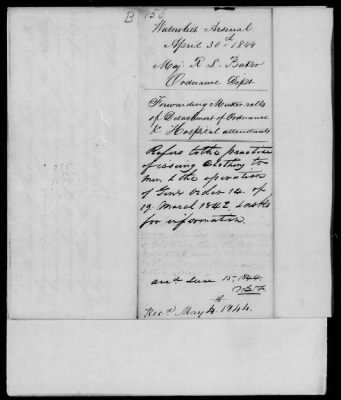 B 150
Watervliet Arsenal
April 30th 1844
Maj: R L Baker
Ordnance Dept
Forwarding Muster rolls
of Detachment of Ordnance
& Hospital attendants
Refers to the practice
of issing Clothing to
men & the operation
of Genl Order 14. of
19. March 1842 & asks
for information.
ansd June 15. 1844.
Recd May 4th 1844.